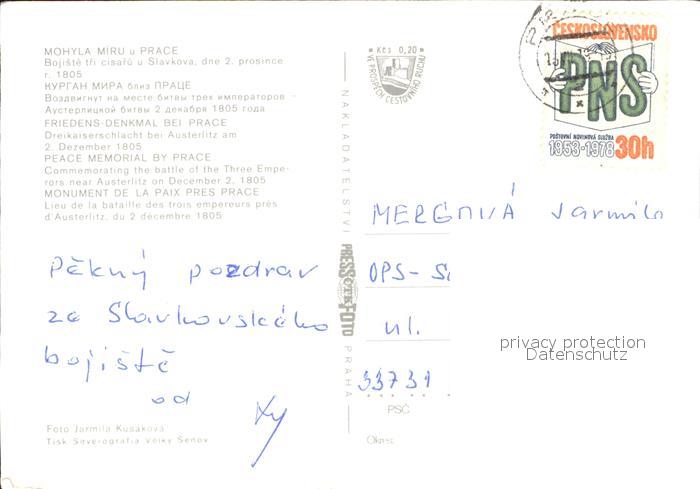 MOHYLA MÍRU u PRACE
Bojiště tří císařů u Slavkova, dne 2. prosince
r. 1805
КУРГАН МИРА близ ПРАЦЕ
Воздвигнут на месте битвы трех императоров –
Аустерлицкой битвы 2 декабря 1805 года
FRIEDENS-DENKMAL BEI PRACE
Dreikaiserschlacht bei Austerlitz am
2. Dezember 1805
PEACE MEMORIAL BY PRACE
Commemorating the battle of the Three Empe-
rors near Austerlitz on December 2, 1805
MONUMENT DE LA PAIX PRES PRACE
Lieu de la bataille des trois empereurs près
d'Austerlitz, du 2 décembre 1805
Pěkný pozdrav
ze Slavkovského
bojiště
od
Foto Jarmila Kusáková
Tisk Severografia Velký Šenov
NAKLADATELSTVÍ
PRESSFOTO
PRAHA
Kčs 0,20
VE PROSPĚCH CESTOVNÍHO RUCHU
ČESKOSLOVENSKO
PNS
POŠTOVNÍ NOVINOVÁ SLUŽBA
1953-1978 30h
MERGOVÁ Jarmila
OPS-S
ul.
33731
PSČ
Okres:
privacy protection
Datenschutz